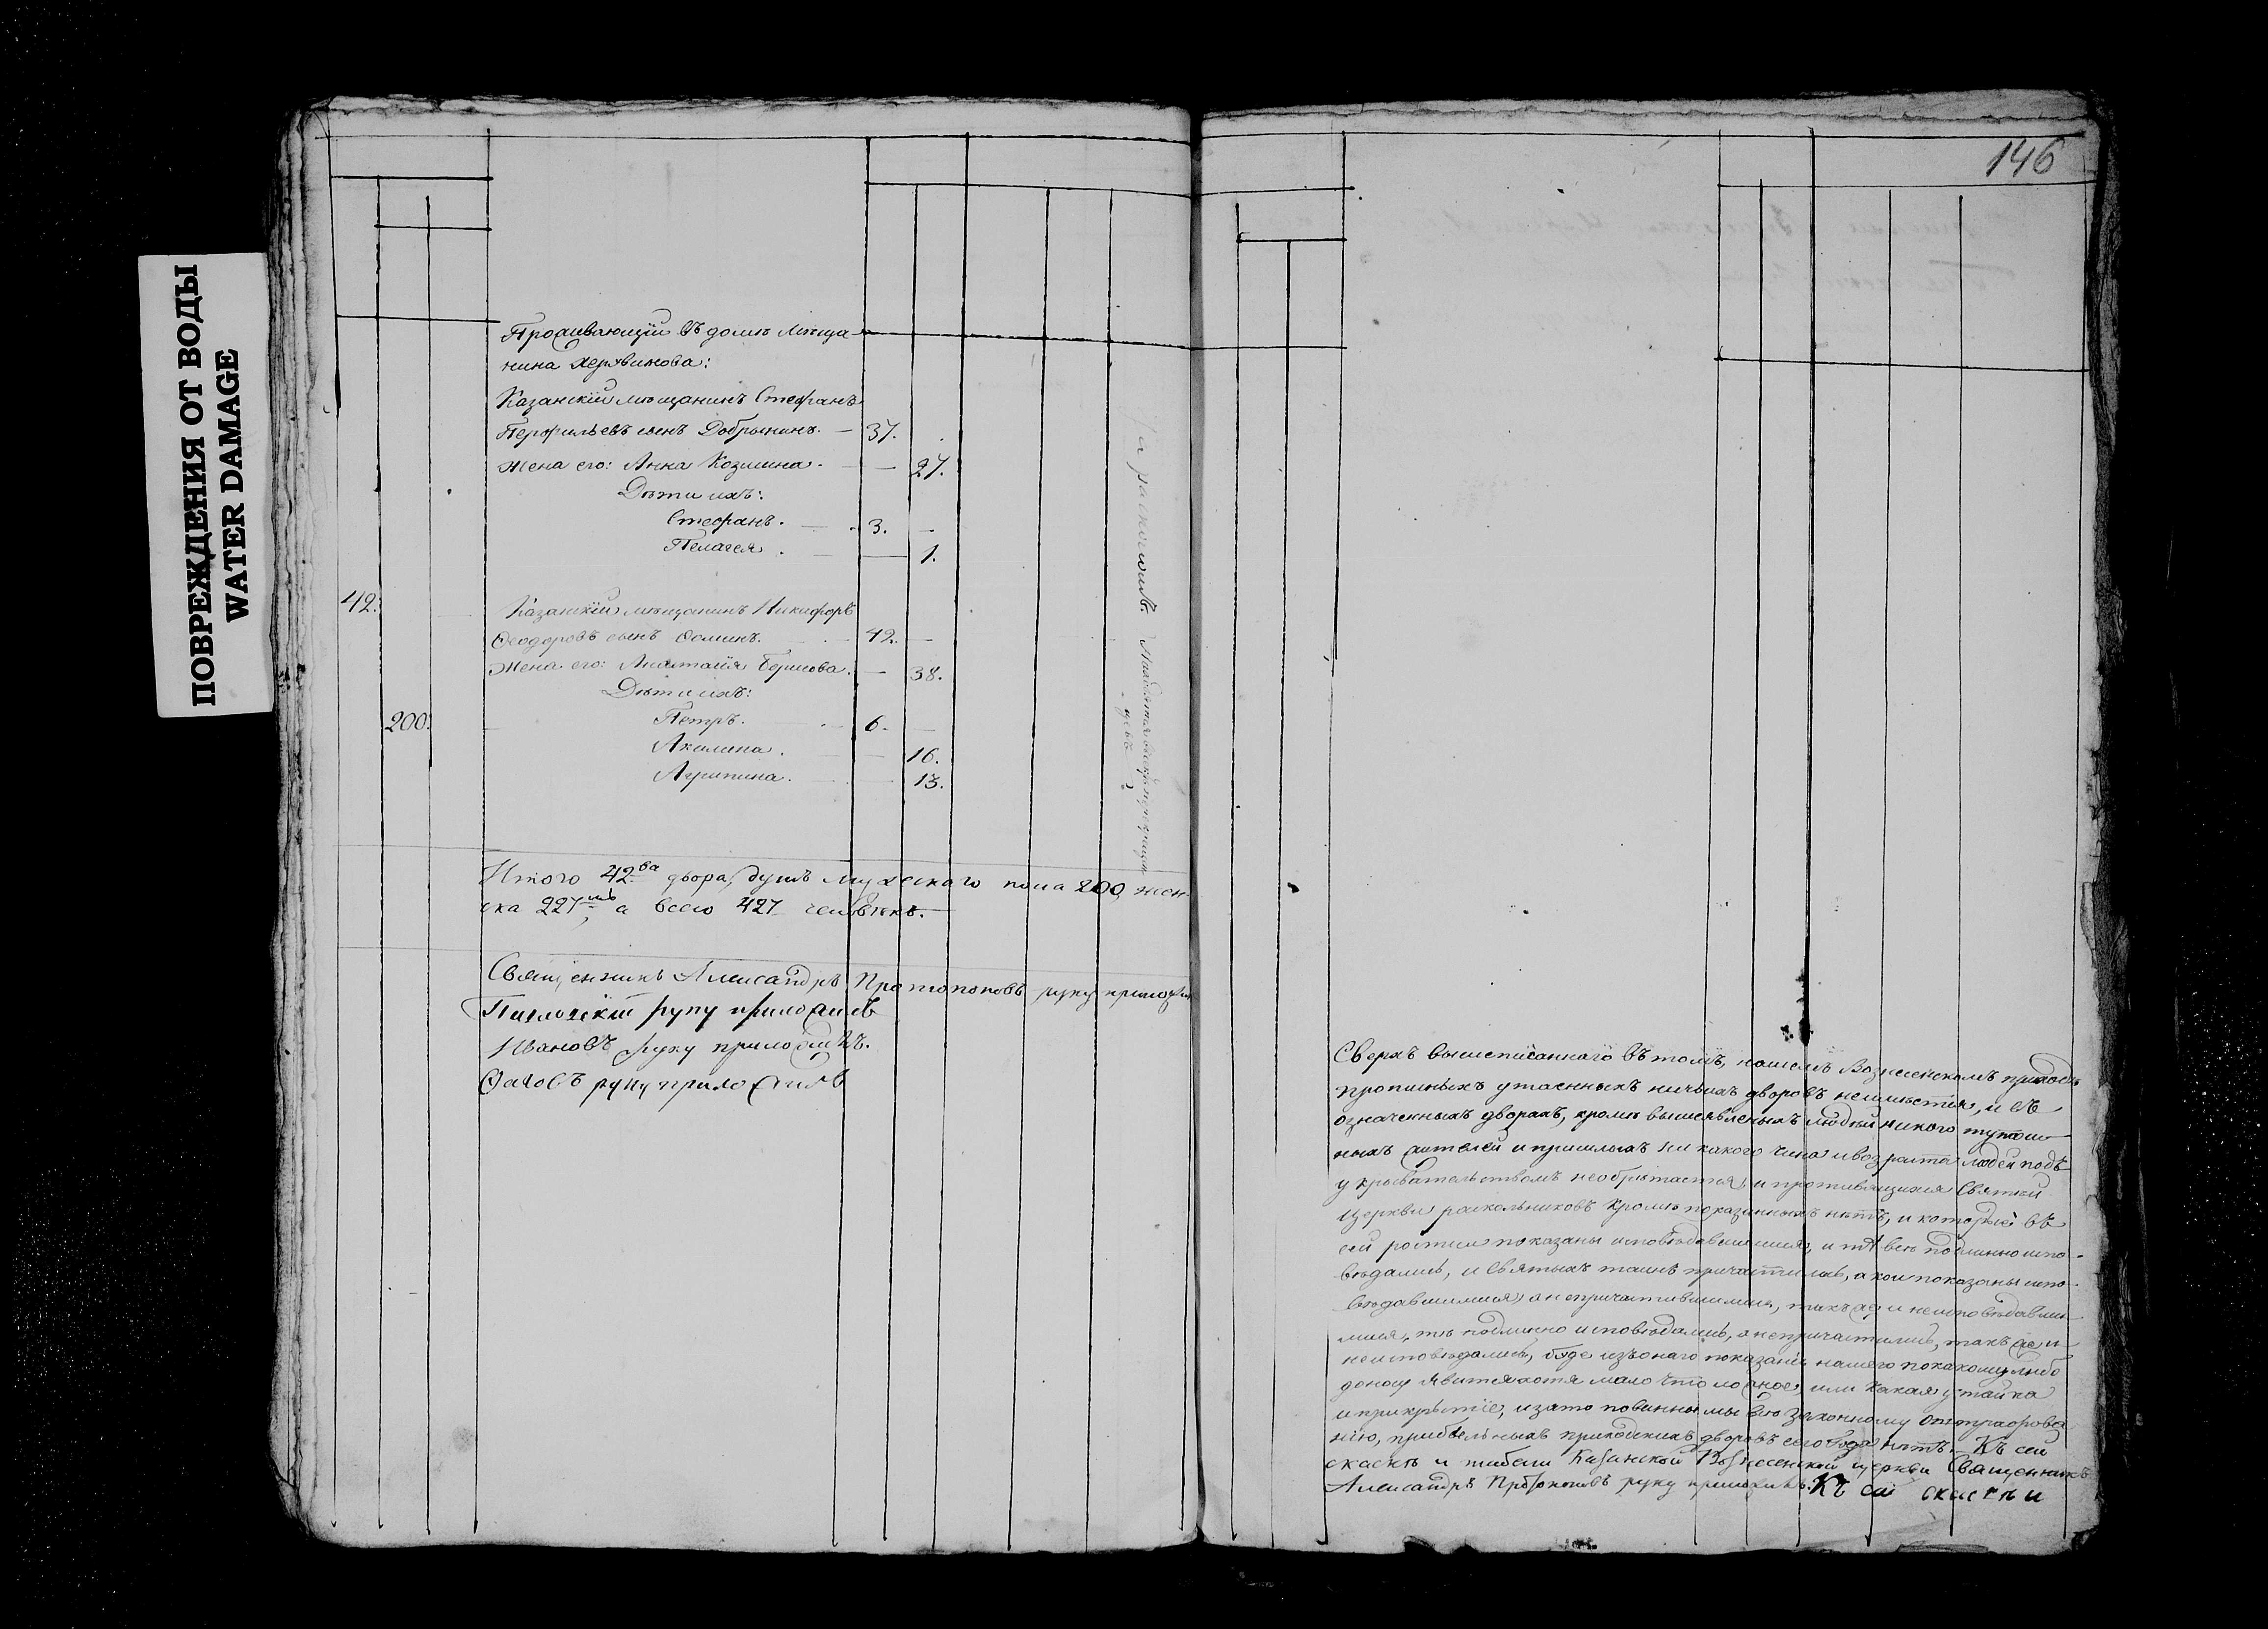 ПОВРЕЖДЕНИЯ ОТ ВОДЫ
WATER DAMAGE
Проживающіи въ домѣ мѣща-
нина
Казанскій мѣщанинъ Стефанъ
Перфильевъ сынъ Добрынинъ. — 37.
Жена его: Анна Козмина. — 27.
Дѣти ихъ:
Стефанъ. — 3. —
Пелагея. — 1.
42. Казанскій мѣщанинъ Никифоръ
Ѳеодоровъ сынъ Ѳоминъ. — 42. —
Жена его: Анастасія Борисова. — 38.
Дѣти ихъ:
200. Петръ. — 6. —
Акилина. — 16.
Агрипина. — 13.
Итого 42ва двора, душъ мужескаго пола 200, жен-
ска 227мь, а всего 427 человѣкъ.
Священникъ Александръ Протопоповъ руку приложилъ
руку приложилъ
Ивановъ руку приложилъ.
руку приложилъ
въ расколѣ.
146
Сверхъ вышеписаннаго въ томъ, нашемъ Вознесенскомъ приходѣ
прописныхъ утаенныхъ ничьихъ дворовъ неимѣется, и въ
означенныхъ дворахъ, кромѣ вышеявленыхъ людей никого тутош-
ныхъ жителей и пришлыхъ ни какого чина и возраста людей подъ
укрывательствомъ необрѣтается, и противящихся Святѣй
Церкви раскольниковъ кромѣ показанныхъ нѣтъ, и которые въ
сей росписи показаны исповѣдавшимися, и тѣ всѣ подлинно испо-
вѣдались, и Святыхъ таинъ причастились, а кои показаны испо-
вѣдавшимися, а непричастившимися, также и неисповѣдавши-
мися, тѣ подлинно исповѣдались, а непричастились, также и
неисповѣдались, буде изъ онаго показанія нашего по какому либо
доносу явится хотя мало что ложное, или какая утайка
и прикрытіе, и за то повинны мы всю законному оштрафова-
нію, прибыльныхъ приходскихъ дворовъ сего года нѣтъ. Къ сей
скаскѣ и табели Казанской Вознесенской церкви Священникъ
Александръ Протопоповъ руку приложилъ. Къ сей скаскѣ и